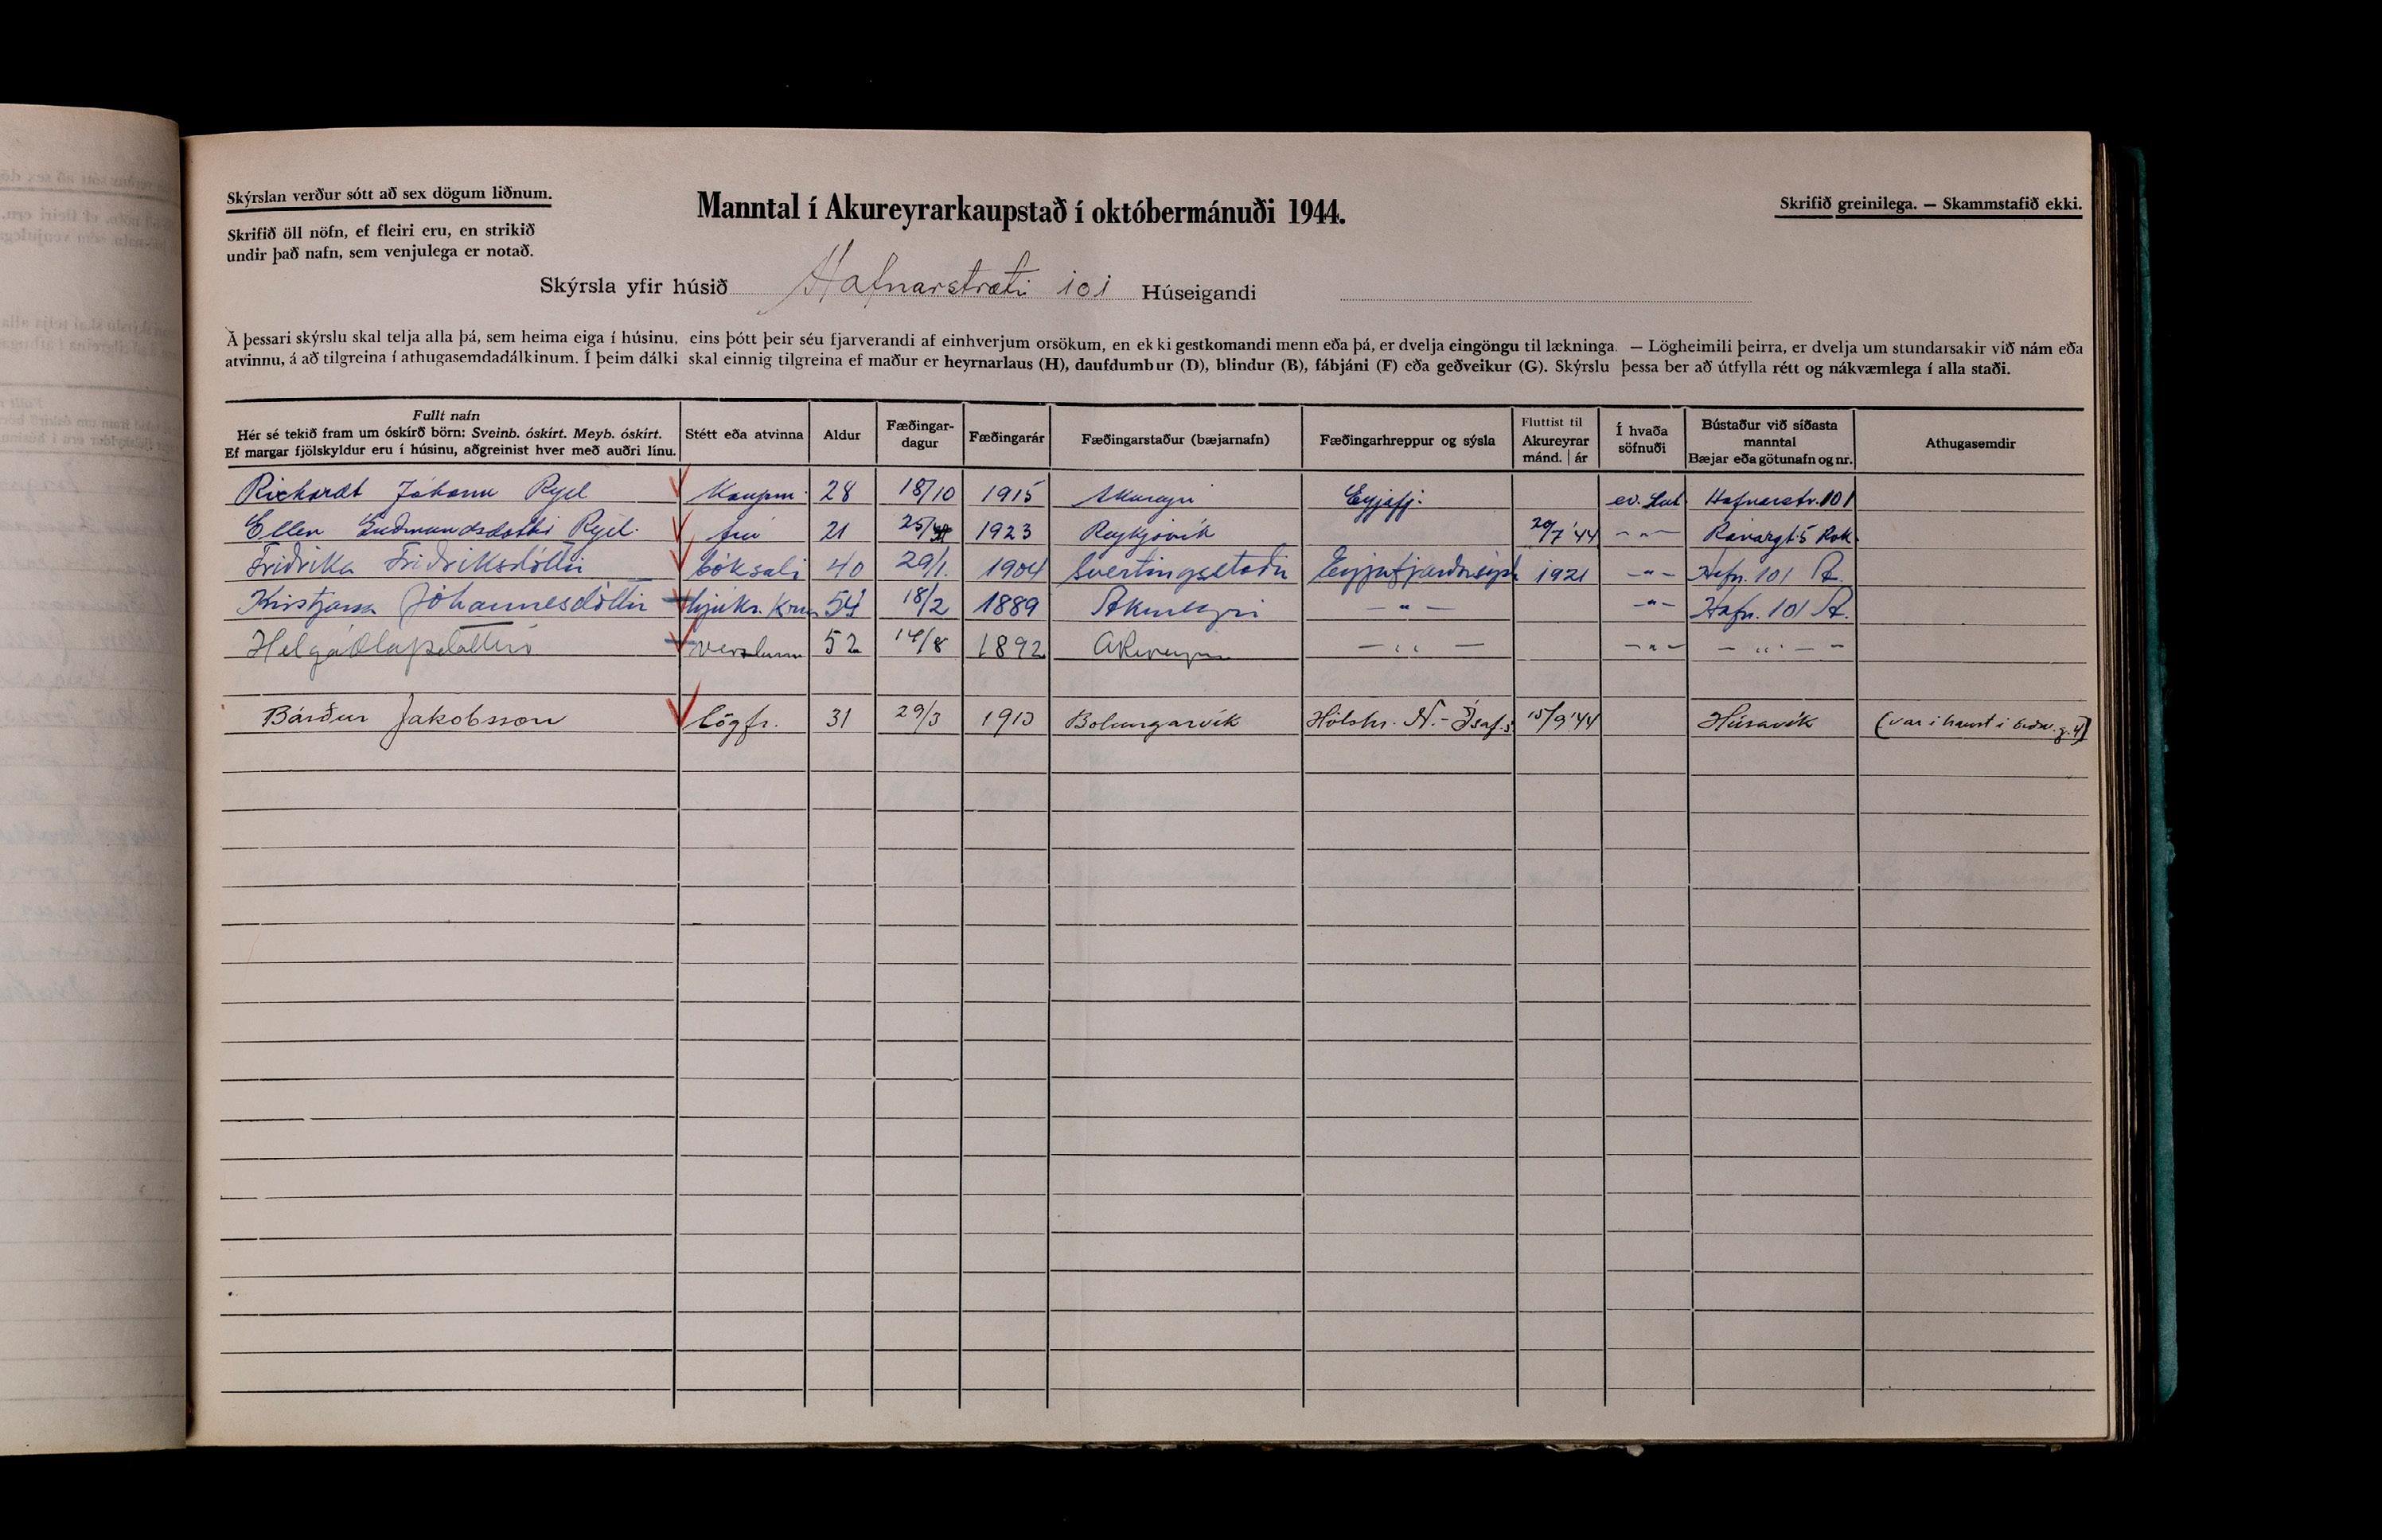 Skýrslan verður sótt að sex dögum liðnum.
Skrifið öll nöfn, ef fleiri eru, en strikið
undir það nafn, sem venjulega er notað.
Manntal í Akureyrarkaupstað í októbermánuði 1944.
Skrifið greinilega. — Skammstafið ekki.
Skýrsla yfir húsið Hafnarstræti 101 Húseigandi
Á þessari skýrslu skal telja alla þá, sem heima eiga í húsinu, eins þótt þeir séu fjarverandi af einhverjum orsökum, en ekki gestkomandi menn eða þá, er dvelja eingöngu til lækninga. — Lögheimili þeirra, er dvelja um stundarsakir við nám eða
atvinnu, á að tilgreina í athugasemdadálkinum. Í þeim dálki skal einnig tilgreina ef maður er heyrnarlaus (H), daufdumbur (D), blindur (B), fábjáni (F) eða geðveikur (G). Skýrslu þessa ber að útfylla rétt og nákvæmlega í alla staði.
Fullt nafn
Hér sé tekið fram um óskírð börn: Sveinb. óskírt. Meyb. óskírt.
Ef margar fjölskyldur eru í húsinu, aðgreinist hver með auðri línu.
Stétt eða atvinna
Aldur
Fæðingar-
dagur
Fæðingarár
Fæðingarstaður (bæjarnafn)
Fæðingarhreppur og sýsla
Fluttist til
Akureyrar
mánd. | ár
Í hvaða
söfnuði
Bústaður við síðasta
manntal
Bæjar eða götunafn og nr.
Athugasemdir
Richardt Jóhann Ryel Kaupm. 28 18/10 1915 Akureyri Eyjafj. ev. Lut Hafnarstr. 101
Ellen Guðmundsdóttir Ryel. frú 21 25/ 1923 Reykjavík 20/7 '44 — " —
Friðrika Friðriksdóttir bóksali 40 29/1. 1904 Svertingsstaðir 1921 — " — Hafn. 101 A.
Kristjana Jóhannesdóttir hjúkr. 54 18/2 1889 Akureyri — " — — " — Hafn. 101 A.
Helga Ólafsdóttir verslunm 52 14/8 1892 Akureyri — " — — " — — " —
Bárður Jakobsson lögfr. 31 29/3 1913 Bolungarvík Hólshr. N.-Ísaf.s 15/9 '44 Húsavík (var í haust í